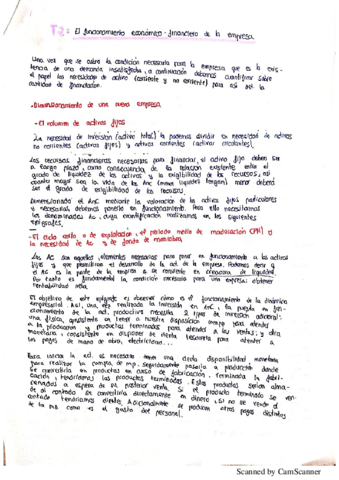 T2: El funcionamiento económico-financiero de la empresa
Una vez que se sabe la condición necesaria para la empresa que es la exis-
tencia de una demanda insatisfecha, a continuación debemos cuantificar sobre
el papel las necesidades de activo (corriente y no corriente) para así ver la
cantidad de financiación.
- Dimensionamiento de una nueva empresa
- El volumen de activos fijos
La necesidad de inversión (activo total) la podemos dividir en necesidad de activos
no corrientes (activos fijos) y activos corrientes (activos circulantes).
Los recursos financieros necesarios para financiar el activo fijo deben ser
a largo plazo, como consecuencia de la relación existente entre el
grado de liquidez de los activos y la exigibilidad de los recursos, así
cuanto mayor sea la vida de los Anc (menor liquidez tengan) menor deberá
ser el grado de exigibilidad de los recursos.
Dimensionado el Anc mediante la valoración de los activos fijos particulares
y necesarios, debemos ponerlo en funcionamiento. Para ello necesitamos
los denominados Ac, cuya cuantificación realizamos en los siguientes
epígrafes.
- El ciclo corto o de explotación, el periodo medio de maduración (PM),
la necesidad de Ac y de fondo de maniobra.
Los Ac son aquellos elementos necesarios para poner en funcionamiento a los activos
fijos y que permitirán el desarrollo de la act. de la empresa. Podemos decir q
el Ac es la parte de la empresa q se convierte en generadora de liquidez.
Por tanto es fundamental la condición necesaria para una empresa: obtener
rentabilidad
El objetivo de este epígrafe es observar cómo es el funcionamiento de la dinámica
empresarial. Así, una vez realizada la inversión en Anc, la puesta en fun-
cionamiento de la act. productiva necesita 2 tipos de inversión adicional:
una física, consistente en tener a nuestra disposición mmpp para atender
a la producción y productos terminados para atender a las ventas; y otra
monetaria, consistente en disponer de cierta tesorería para atender a
los pagos de mano de obra, electricidad...
Para iniciar la act. es necesario tener una cierta disponibilidad monetaria
para realizar la compra de mp. Seguidamente pasaría a producción donde
se convertiría en productos en curso de fabricación. Terminada la fabri-
cación, tendríamos los productos terminados. Estos productos serían alma-
cenados a espera de su posterior venta. Si el producto terminado se ven-
de al contado se convertiría directamente en dinero, si no se vende al
contado tendríamos clientes. Adicionalmente se producen otros pagos distintos
de la mp como es el gasto del personal.
Scanned by CamScanner